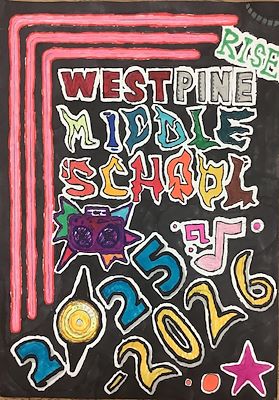 RISE
WESTPINE
MIDDLE
SCHOOL
2025
-2026